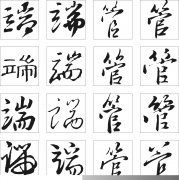 端 端 管 管
端 端 管 管
端 端 管 管
端 端 管 管